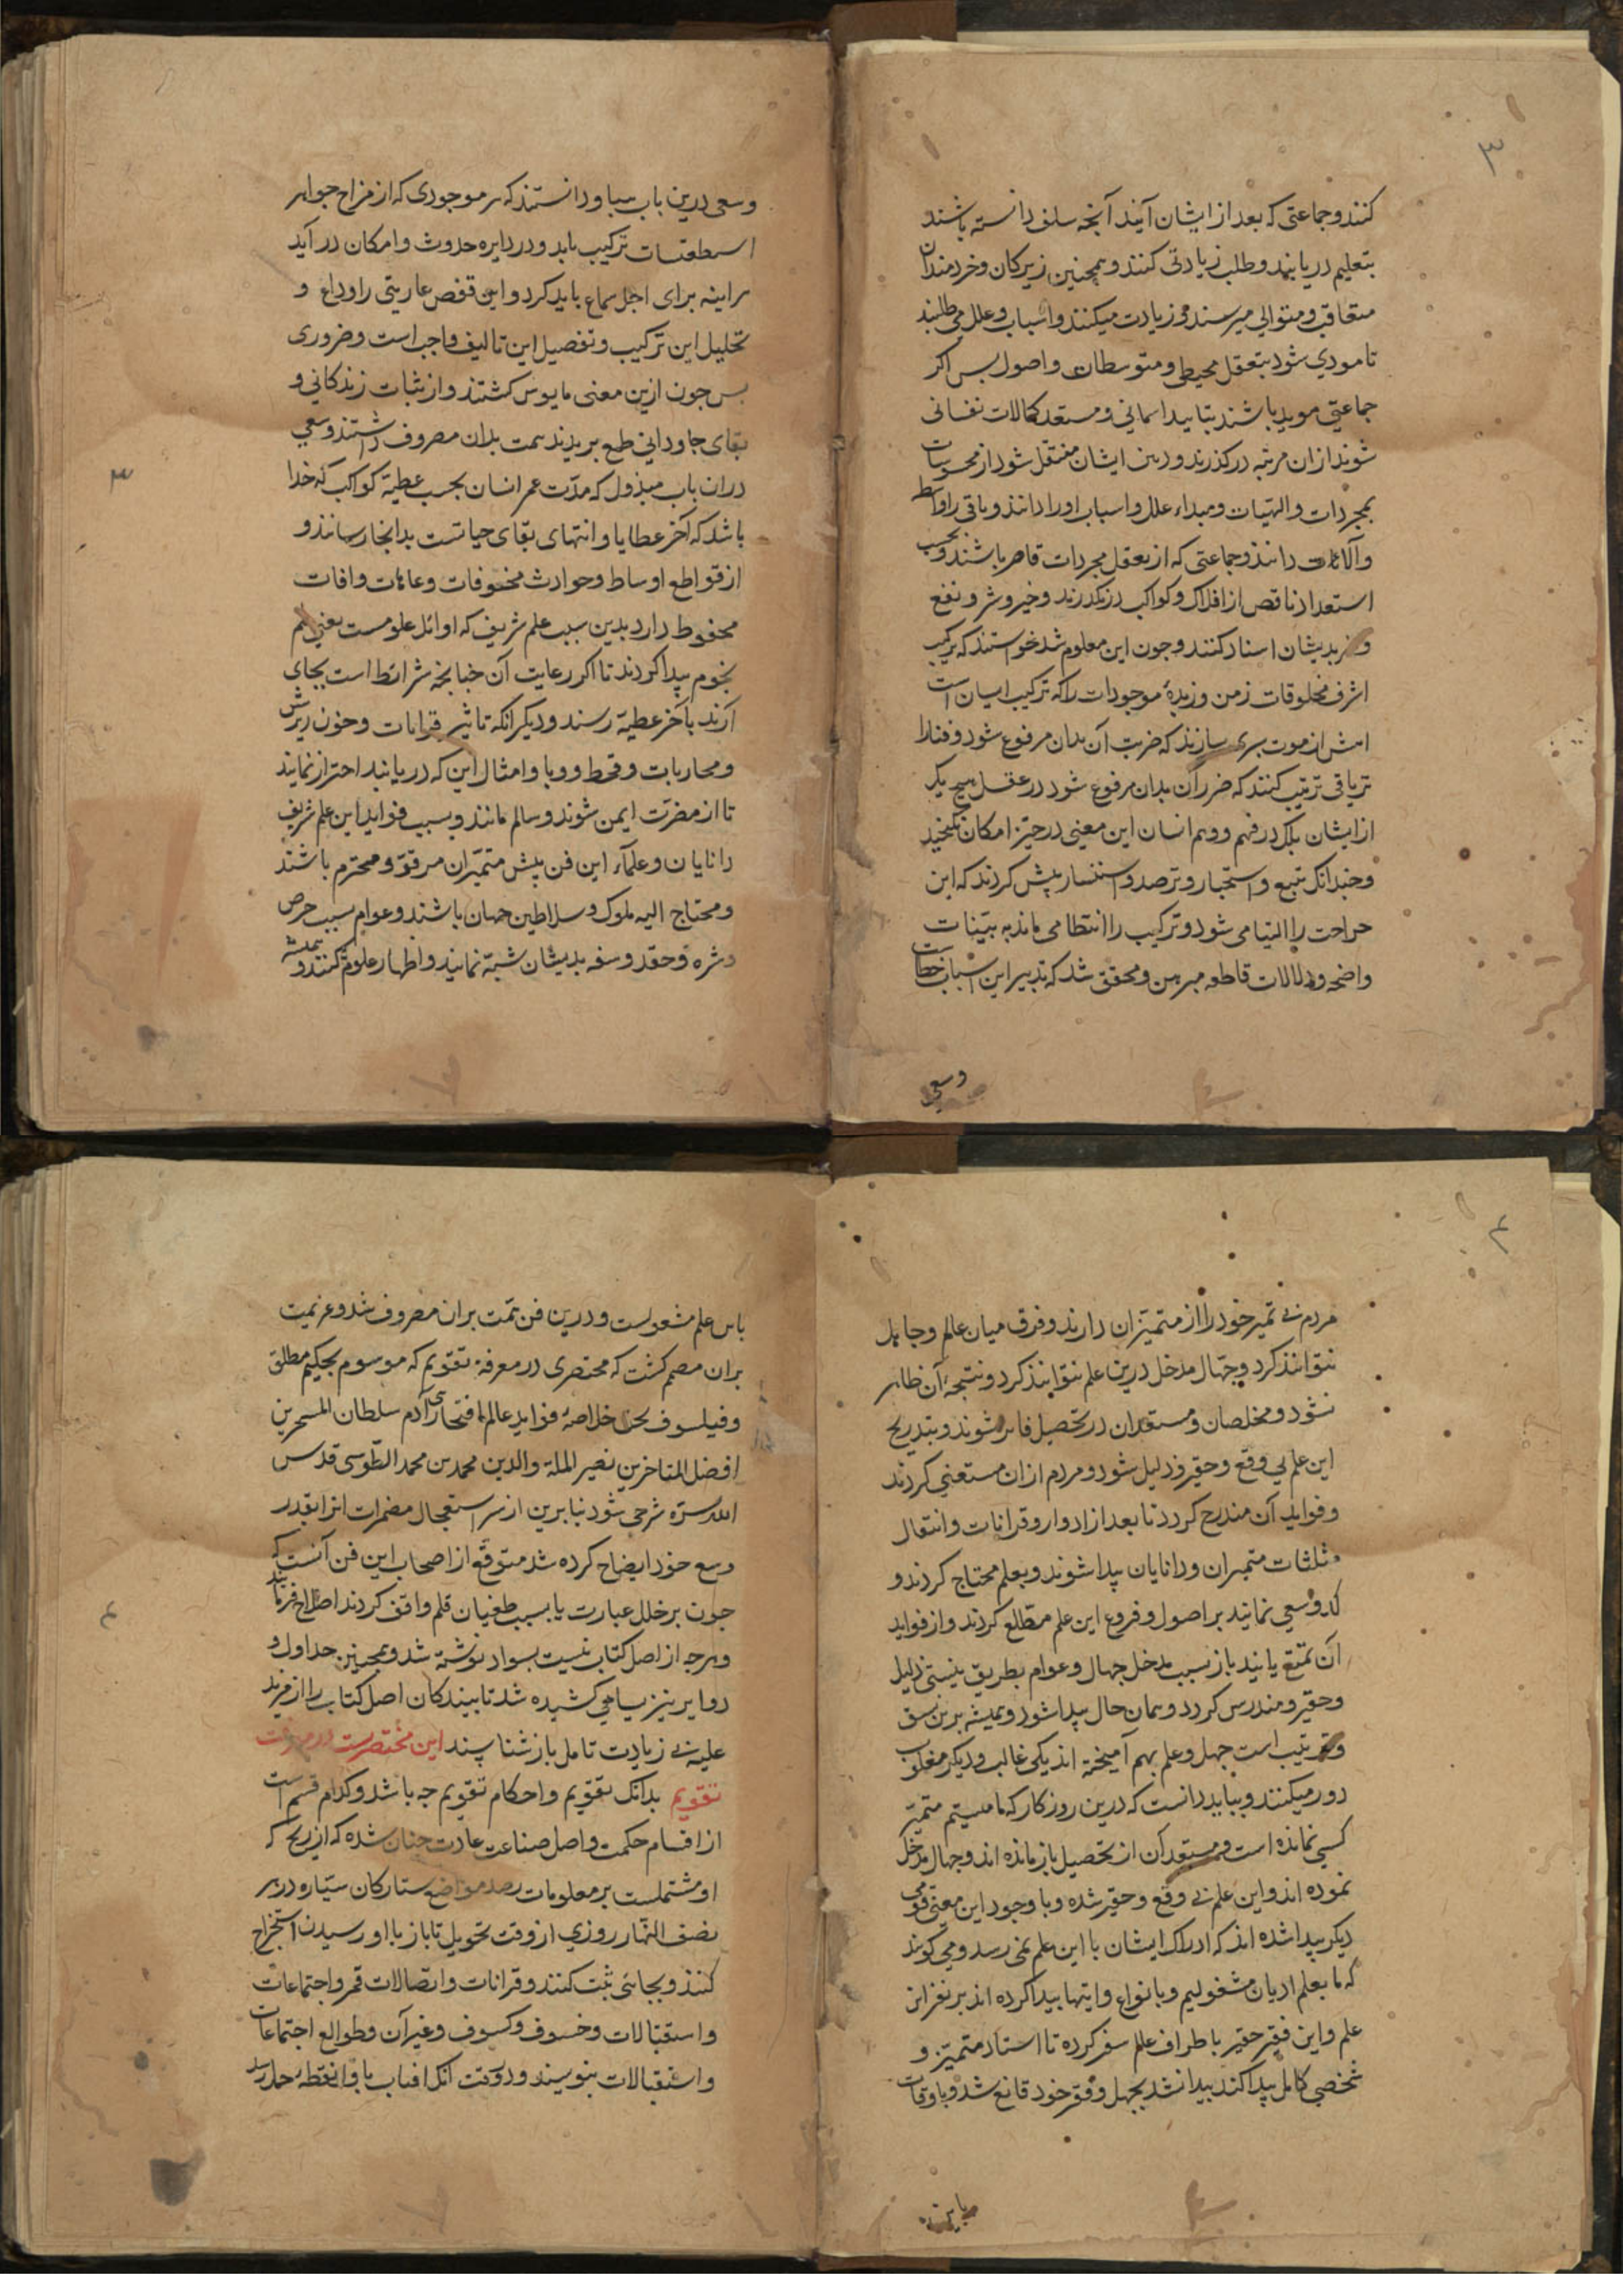 ۳
کنند و جماعتی که بعد از ایشان آیند آنچه سلف دانسته باشند
بتعلیم دریابند و طلب زیادتی کنند و همچنین زیرکان و خردمندان
متعاقب و متوالی میرسند و زیادت میکنند و اسباب و علل می طلبند
تا مودی شود بتعقل محیط و متوسطات و اصول بس اکر
جماعتی موید باشند بتایید اسمانی و مستعد کمالات نفسانی
شوند از ان مرتبه در کذرند و ذهن ایشان منتقل شود از محسوسات
بمجردات و الهیات و مبداء علل و اسباب او را دانند و باقی را وسایط
و آلات دانند و جماعتی که از تعقل مجردات قاصر باشند و بحسب
استعداد ناقص از افلاک و کواکب در نکذرند و خیر و شر و نفع
و ضر بدیشان اسناد کنند و جون این معلوم شد خواستند که ترکیب
اشرف مخلوقات زمن و زبدهٔ موجودات را که ترکیب انسان است
از موت بری سازند که ضرب آن بدان مرفوع شود و فنا را
تریاقی ترتیب کنند که ضرر آن بدان مرفوع شود در عقل هیچ یک
از ایشان بلک در فهم و وهم انسان این معنی در حیز امکان نکنجید
و جندانک تتبع و استخبار و ترصد و استفسار بیش کردند که این
جراحت را التیامی شود و ترکیب را انتظامی ماند به بینات
واضحه و دلالات قاطعه مبرهن و محقق شد که تدبیر این اسباب خطاست
وسعی
وسعی درین باب هبا و دانستند که هر موجودی که از مزاج جواهر
اسطقسات ترکیب یابد و در دایره حدوث و امکان در آید
هراینه برای اجل سماع باید کرد و این قفص عاریتی را وداع و
تحلیل این ترکیب و تفصیل این تالیف واجب است و ضروری
بس جون ازین معنی مایوس کشتند و از ثبات زندکانی و
بقای جاودانی طمع بریدند همت بدان مصروف داشتند و سعی
در ان باب مبذول که مدّت عمر انسان بحسب عطیة کواکب کدخدا
باشد که آخر عطایا و انتهای بقای حیاتست بدانجا رسانند و
از قواطع اوساط و حوادث مخوفات و عاهات و افات
محفوظ دارد بدین سبب علم شریف که اوائل علومست یعنی علم
نجوم پیدا کردند تا اکر رعایت آن جنانچه شرائط است بجای
آرند بآخر عطیة رسند و دیکر انکه تاثیر قرانات و خون ریزش
و محاربات و قحط و وبا و امثال این که دریابند احتراز نمایند
تا از مضرّت ایمن شوند و سالم مانند و بسبب فواید این علم شریف
دانایان و علمآء این فن پیش متمیّزان مرقوّ و محترم باشند
و محتاج الیه ملوک و سلاطین جهان باشند و عوام بسبب حرص
و شره و حقد و سفه بدیشان تشبّه نمایند و اظهار علوم کنند و همیشه
۳
۴
مردم بی تمیز خود را از متمیّزان دارند و فرق میان عالم و جاهل
نتوانند کرد و جهّال مدخل درین علم نتوانند کرد و نتیجهٔ آن ظاهر
نشود و مخلصان و مستعدان در تحصیل فاتر شوند و بتدریج
این علم بی وقع و حقیر و ذلیل شود و مردم از ان مستغنی کردند
و فواید آن مندرج کردد تا بعد از ادوار و قرانات و انتقال
مثلثات متمیزان و دانایان پیدا شوند و بعلم محتاج کردند و
کد و سعی نمایند بر اصول و فروع این علم مطّلع کردند و از فواید
آن تمتع یابند باز بسبب مدخل جهال و عوام بطریق نیستی ذلیل
و حقیر و مندرس کردد و همان حال پیدا شود و همیشه برین نسق
و ترتیب است جهل و علم بهم آمیخته اند یکی غالب و دیکر مغلوب
دور میکنند و بباید دانست که درین روزکار که ما هستیم متمیّز
کسی نمانده است و مستعدان از تحصیل باز مانده اند و جهال مدخل
نموده اند و این علم بی وقع و حقیر شده و با وجود این معنی قومی
دیکر پیدا شده اند که ادراک ایشان با این علم نمی رسد و می کویند
که ما بعلم ادیان مشغولیم و بانواع پیدا کرده اند بر نفرا از
علم و این فقیر حقیر باطراف عالم سفر کرده تا استاد متمیّز و
شخصی کامل پیدا کند پیدا نشد بجهل و فقر خود قانع شد و باوقات
باین
باین علم مشغولست و درین فن همّت بران مصروف شد و عزیمت
بران مصمم کشت که مختصری در معرفة تقویم که موسوم بحکیم مطلق
و فیلسوف خلاصهٔ فواید عالم افتخار بنی آدم سلطان المتبحرین
افضل المتاخرین نصیر الملة والدین محمد بن محمد الطّوسی قدس
الله سرّه شرحی شود بنا برین از سر استعجال مضمرات انرا بقدر
وسع خود ایضاح کرده شد متوقع از اصحاب این فن آنست که
جون بر خلل عبارت یا بسبب طغیان قلم واقف کردند اصلاح فرمایند
و هرجه از اصل کتاب نیست بسواد نوشته شد و همچنین جداول و
دوایر نیز بسیاهی کشیده شد تا بینندکان اصل کتاب را از مزید
علیه بی زیادت تامل باز شناسند این مختصریست در معرفت
تقویم بدانک تقویم و احکام تقویم جه باشد و کدام قسم است
از اقسام حکمت و اصل صناعت عادت جنان شده که از زیج که
او مشتملست بر معلومات رصد مواضع ستارکان سیّاره در هر
نصف النّهار روزی از وقت تحویل تا باز با او رسیدن استخراج
کنند و بجائی ثبت کنند و قرانات و اتصالات قمر و اجتماعات
و استقبالات و خسوف و کسوف و غیر آن و طوالع اجتماعات
و استقبالات بنویسند و در وقت آنک افتاب با نقطهٔ حمل رسد
۴